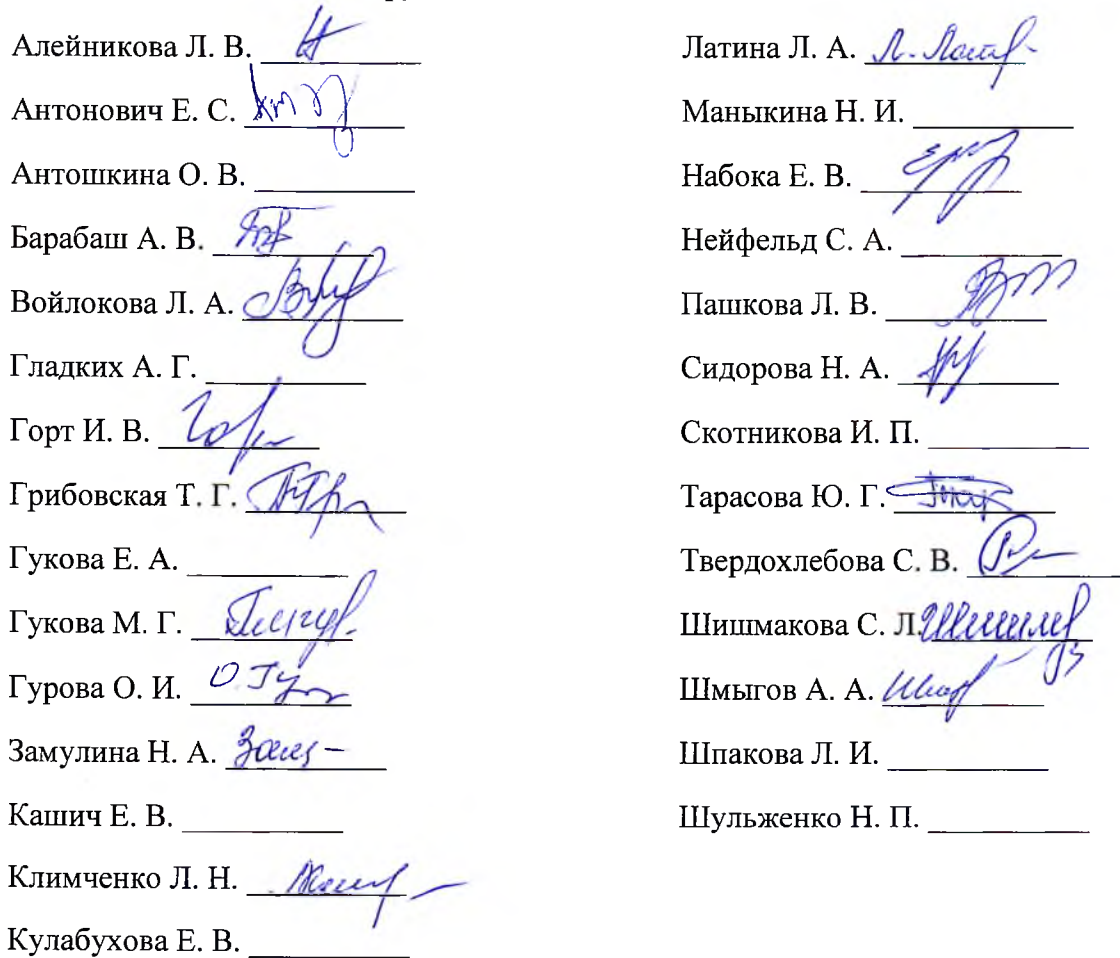 Алейникова Л. В.
Антонович Е. С.
Антошкина О. В.
Барабаш А. В.
Войлокова Л. А.
Гладких А. Г.
Горт И. В.
Грибовская Т. Г.
Гукова Е. А.
Гукова М. Г.
Гурова О. И.
Замулина Н. А.
Кашич Е. В.
Климченко Л. Н.
Кулабухова Е. В.
Латина Л. А.
Маныкина Н. И.
Набока Е. В.
Нейфельд С. А.
Пашкова Л. В.
Сидорова Н. А.
Скотникова И. П.
Тарасова Ю. Г.
Твердохлебова С. В.
Шишмакова С. Л.
Шмыгов А. А.
Шпакова Л. И.
Шульженко Н. П.